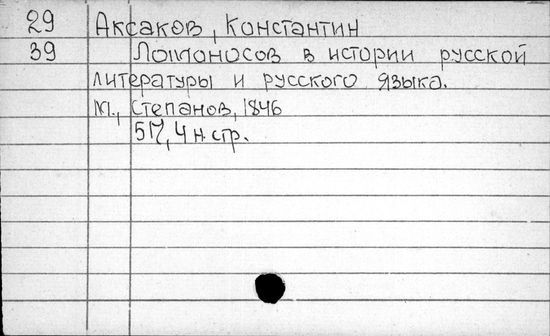 29 Аксаков, Константин
39 Ломоносов в истории русской
литературы и русского языка.
М., Степанов, 1846
517, 4 н. стр.